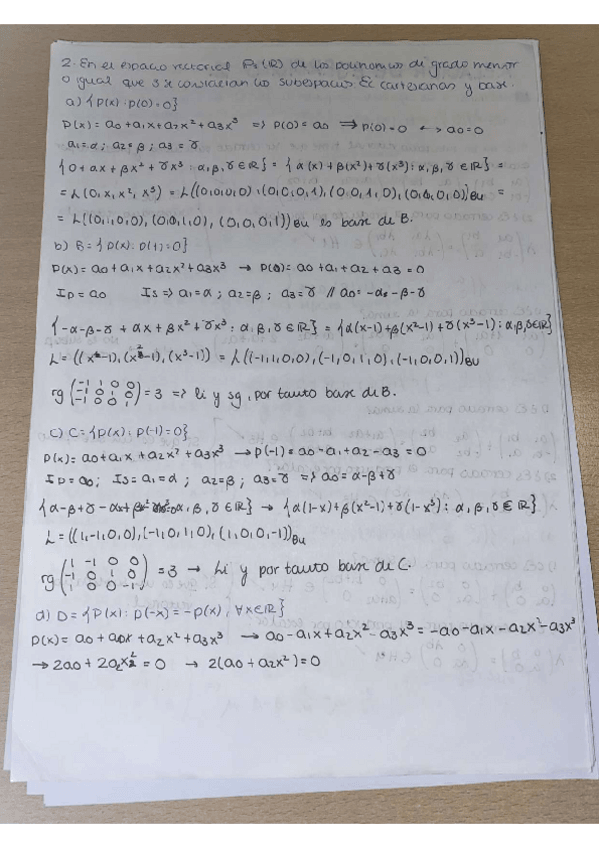 2. En el espacio vectorial P₃(ℝ) de los polinomios di grado menor
o igual que 3 se consideran los subespacios Ec cartesianas y base.
a) {p(x) : p(0)=0}
p(x) = a0 + a1x + a2x² + a3x³ => p(0) = a0 => p(0)=0 <-> a0=0
a1=α ; a2=β ; a3=γ
{0 + αx + βx² + γx³ : α,β,γ ∈ ℝ} = {α(x) + β(x²) + γ(x³) : α,β,γ ∈ ℝ} =
= L(0, x, x², x³) = L((0,0,0,0), (0,0,0,1), (0,0,1,0), (0,0,0,0))Bu =
= L((0,1,0,0), (0,0,1,0), (0,0,0,1))Bu es base de B.
b) B = {p(x) : p(1)=0}
p(x) = a0 + a1x + a2x² + a3x³ → p(0) = a0 + a1 + a2 + a3 = 0
ID = a0 IS => a1=α ; a2=β ; a3=γ // a0 = -α-β-γ
{-α-β-γ + αx + βx² + γx³ : α,β,γ ∈ ℝ} = {α(x-1) + β(x²-1) + γ(x³-1) : α,β,γ∈ℝ}
L = ((x-1), (x²-1), (x³-1)) = L((-1,1,0,0), (-1,0,1,0), (-1,0,0,1))Bu
rg (-1 1 0 0 / -1 0 1 0 / -1 0 0 1) = 3 => li y sg, por tanto base de B.
c) C = {p(x) : p(-1)=0}
p(x) = a0 + a1x + a2x² + a3x³ → p(-1) = a0 - a1 + a2 - a3 = 0
ID = a0; IS = a1=α ; a2=β ; a3=γ => a0 = α-β+γ
{α-β+γ - αx + βx² α,β,γ ∈ ℝ} → {α(1-x) + β(x²-1) + γ(1-x³) : α,β,γ ∈ ℝ}
L = ((1,-1,0,0), (-1,0,1,0), (1,0,0,-1))Bu
rg (1 -1 0 0 / -1 0 1 0 / 1 0 0 -1) = 3 → Li y por tanto base de C.
d) D = {p(x) : p(-x) = -p(x), ∀x∈ℝ}
p(x) = a0 + a1x + a2x² + a3x³ → a0 - a1x + a2x² - a3x³ = -a0 - a1x - a2x² - a3x³
→ 2a0 + 2a2x² = 0 → 2(a0 + a2x²) = 0